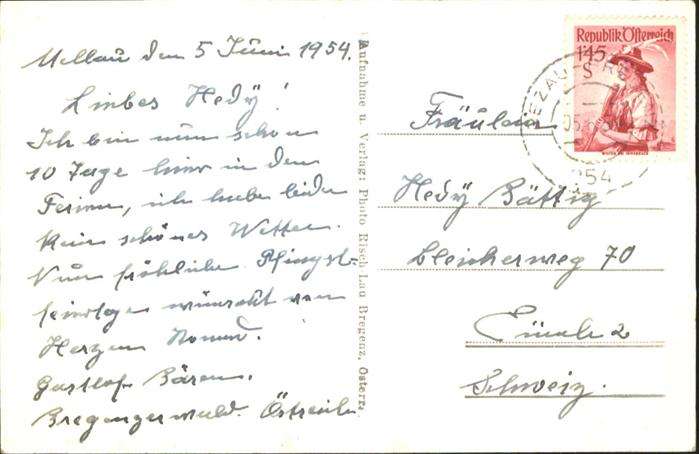 Mellau den 5 Juni 1954.
Liebes Hedy!
Ich bin nun schon
10 Tage hier in den
Ferien, ich habe leider
kein schönes Wetter.
Nun fröhliche Pfingst-
feiertage wünscht von
Herzen
Gasthof Bären.
Bregenzerwald. Östreich
Aufnahme u. Verlag: Photo Risch Lau Bregenz, Österr.
Republik Österreich
1'45
S
BEZAU
254
Fräulein
Hedy Bättig
Bleicherweg 70
Zürich 2
Schweiz.